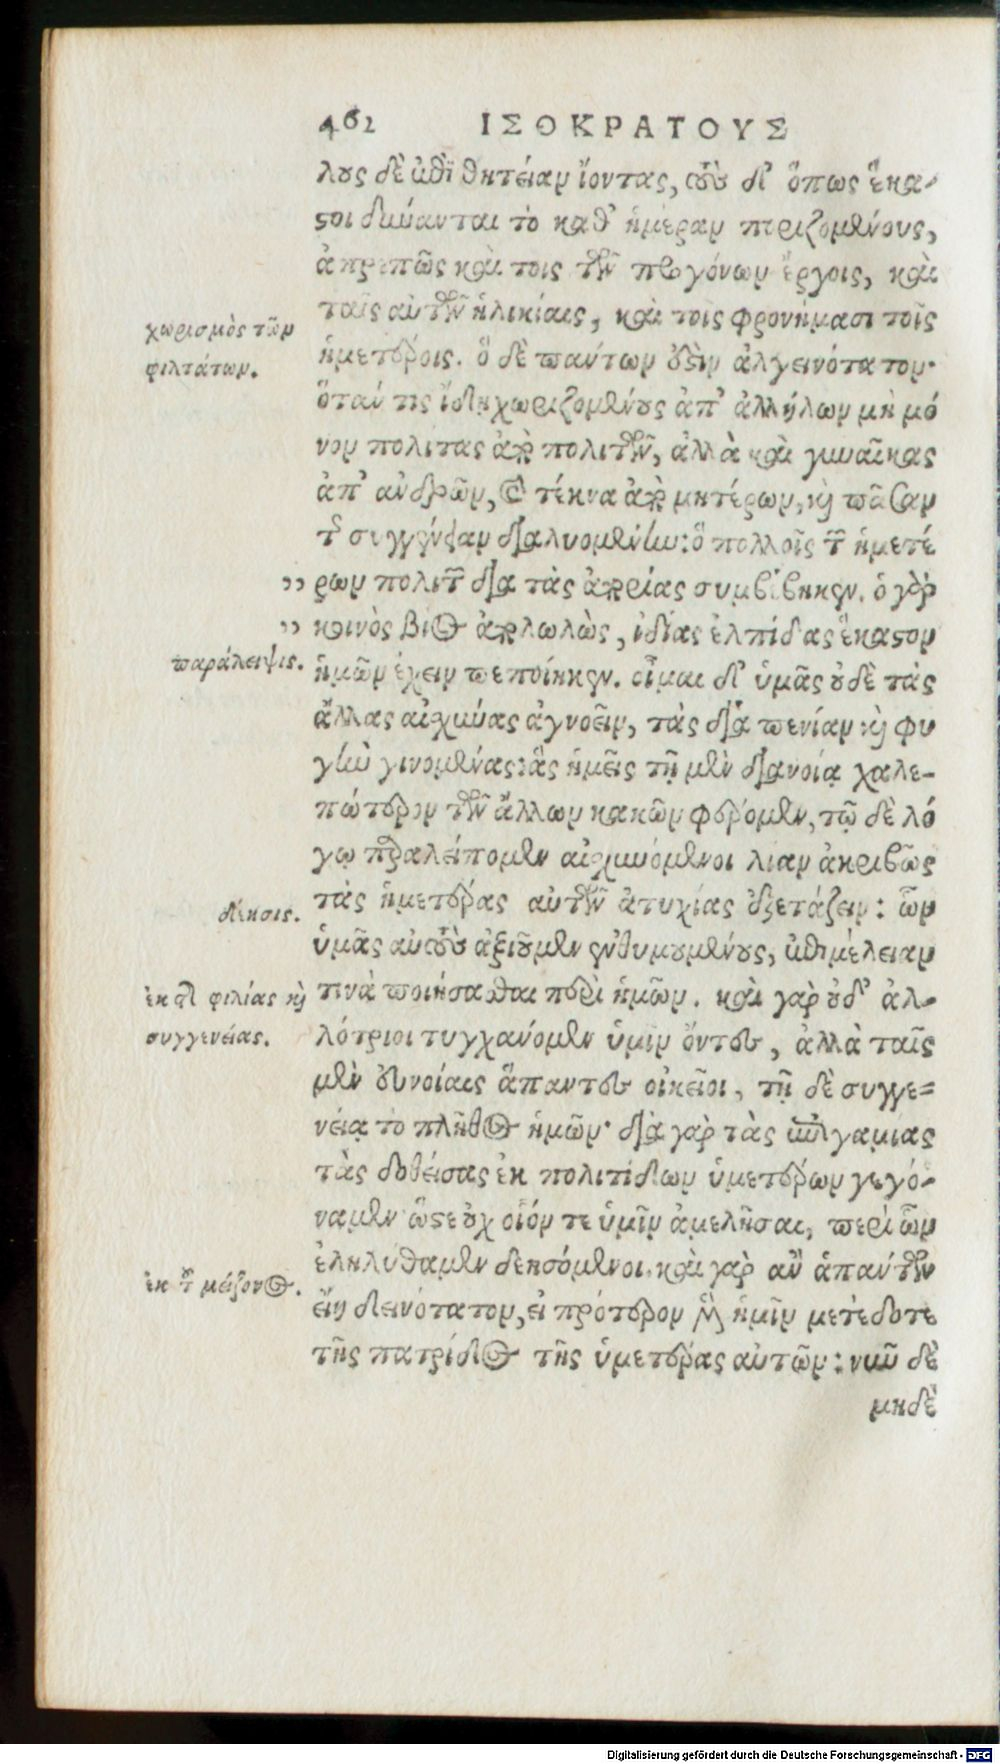 462 ΙΣΟΚΡΑΤΟΥΣ
λους δὲ ἐπὶ θητείαν ἰόντας, τοὺς δ' ὅπως ἕκα-
στοι δύνανται τὸ καθ' ἡμέραν ποριζομένους,
ἀπρεπῶς καὶ τοῖς τῶν προγόνων ἔργοις, καὶ
ταῖς αὐτῶν ἡλικίαις, καὶ τοῖς φρονήμασι τοῖς
χωρισμὸς τῶν
φιλτάτων.
ἡμετέροις. ὃ δὲ πάντων ἐστὶν ἀλγεινότατον·
ὅταν τις ἴδῃ χωριζομένους ἀπ' ἀλλήλων μὴ μό
νον πολίτας ἀπὸ πολιτῶν, ἀλλὰ καὶ γυναῖκας
ἀπ' ἀνδρῶν, καὶ τέκνα ἀπὸ μητέρων, καὶ πᾶσαν
τὴν συγγένειαν διαλυομένην: ὃ πολλοῖς τῶν ἡμετέ
,, ρων πολιτῶν διὰ τὰς ἀπορίας συμβέβηκεν. ὁ γὰρ
,, κοινὸς βίος ἀπολωλὼς, ἰδίας ἐλπίδας ἕκαστον
παράλειψις.
ἡμῶν ἔχειν πεποίηκεν. οἶμαι δ' ὑμᾶς οὐδὲ τὰς
ἄλλας αἰσχύνας ἀγνοεῖν, τὰς διὰ πενίαν καὶ φυ
γὴν γινομένας: ἃς ἡμεῖς τῇ μὲν διανοίᾳ χαλε-
πώτερον τῶν ἄλλων κακῶν φέρομεν, τῷ δὲ λό
γῳ παραλείπομεν αἰσχυνόμενοι λίαν ἀκριβῶς
δέησις.
τὰς ἡμετέρας αὐτῶν ἀτυχίας ἐξετάζειν: ὧν
ὑμᾶς αὐτοὺς ἀξιοῦμεν ἐνθυμουμένους, ἐπιμέλειαν
ἐκ τῆς φιλίας καὶ
συγγενείας.
τινὰ ποιήσασθαι περὶ ἡμῶν. καὶ γὰρ οὐδ' ἀλ-
λότριοι τυγχάνομεν ὑμῖν ὄντες, ἀλλὰ ταῖς
μὲν εὐνοίαις ἅπαντες οἰκεῖοι, τῇ δὲ συγγε=
νείᾳ τὸ πλῆθος ἡμῶν· διὰ γὰρ τὰς ἐπιγαμίας
τὰς δοθείσας ἐκ πολιτίδων ὑμετέρων γεγό-
ναμεν ὥστε οὐχ οἷόν τε ὑμῖν ἀμελῆσαι, περὶ ὧν
ἐληλύθαμεν δεησόμενοι. καὶ γὰρ ἂν ἁπάντων
ἐκ τοῦ μείζονος.
εἴη δεινότατον, εἰ πρότερον μὲν ἡμῖν μετέδοτε
τῆς πατρίδος τῆς ὑμετέρας αὐτῶν: νῦν δὲ
μηδὲ
Digitalisierung gefördert durch die Deutsche Forschungsgemeinschaft - DFG